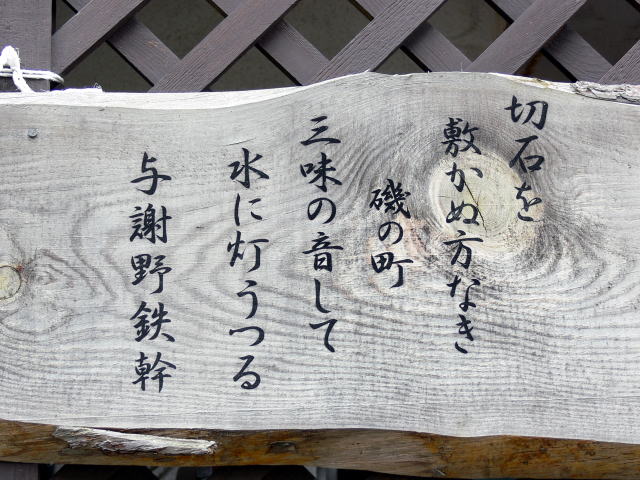 切石を
敷かぬ方なき
磯の町
三味の音して
水に灯うつる
与謝野鉄幹